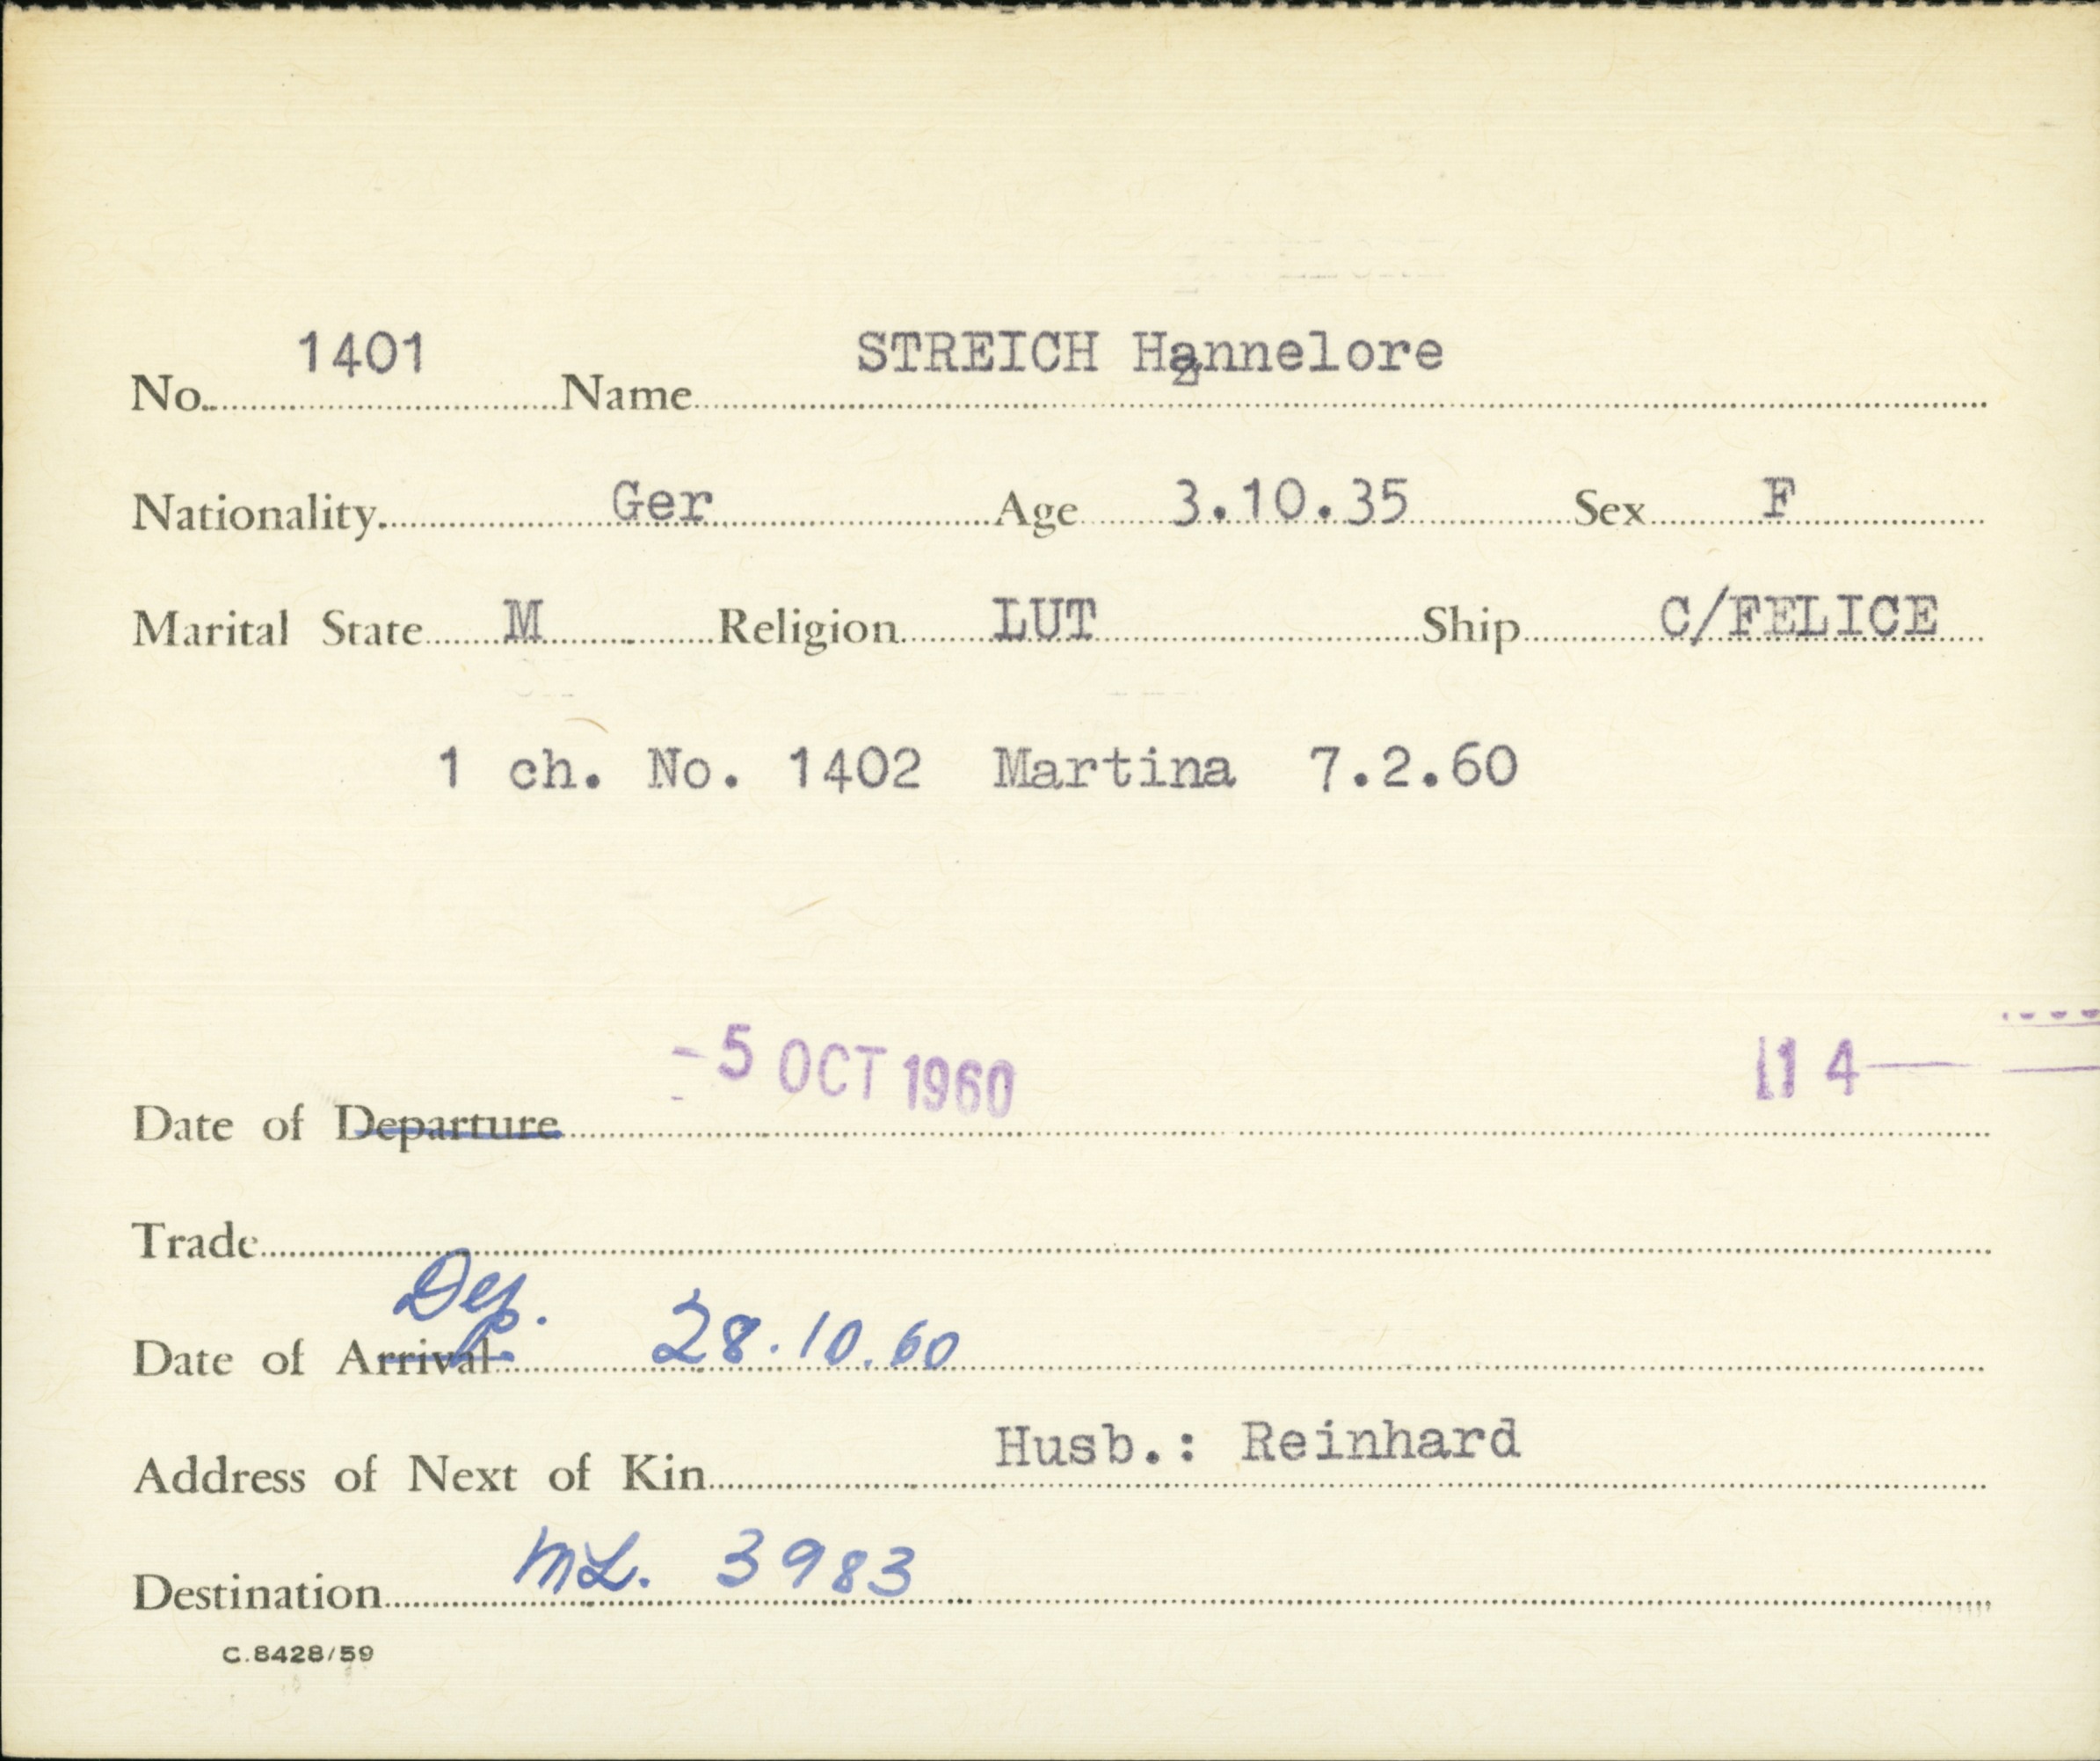 No. 1401 Name STREICH Hannelore
Nationality. Ger Age 3.10.35 Sex F
Marital State M Religion LUT Ship C/FELICE
1 ch. No. 1402 Martina 7.2.60
-5 OCT 1960 114
Date of Departure
Trade
Dep.
Date of Arrival 28.10.60
Address of Next of Kin Husb.: Reinhard
Destination ML. 3983
C.8428/59